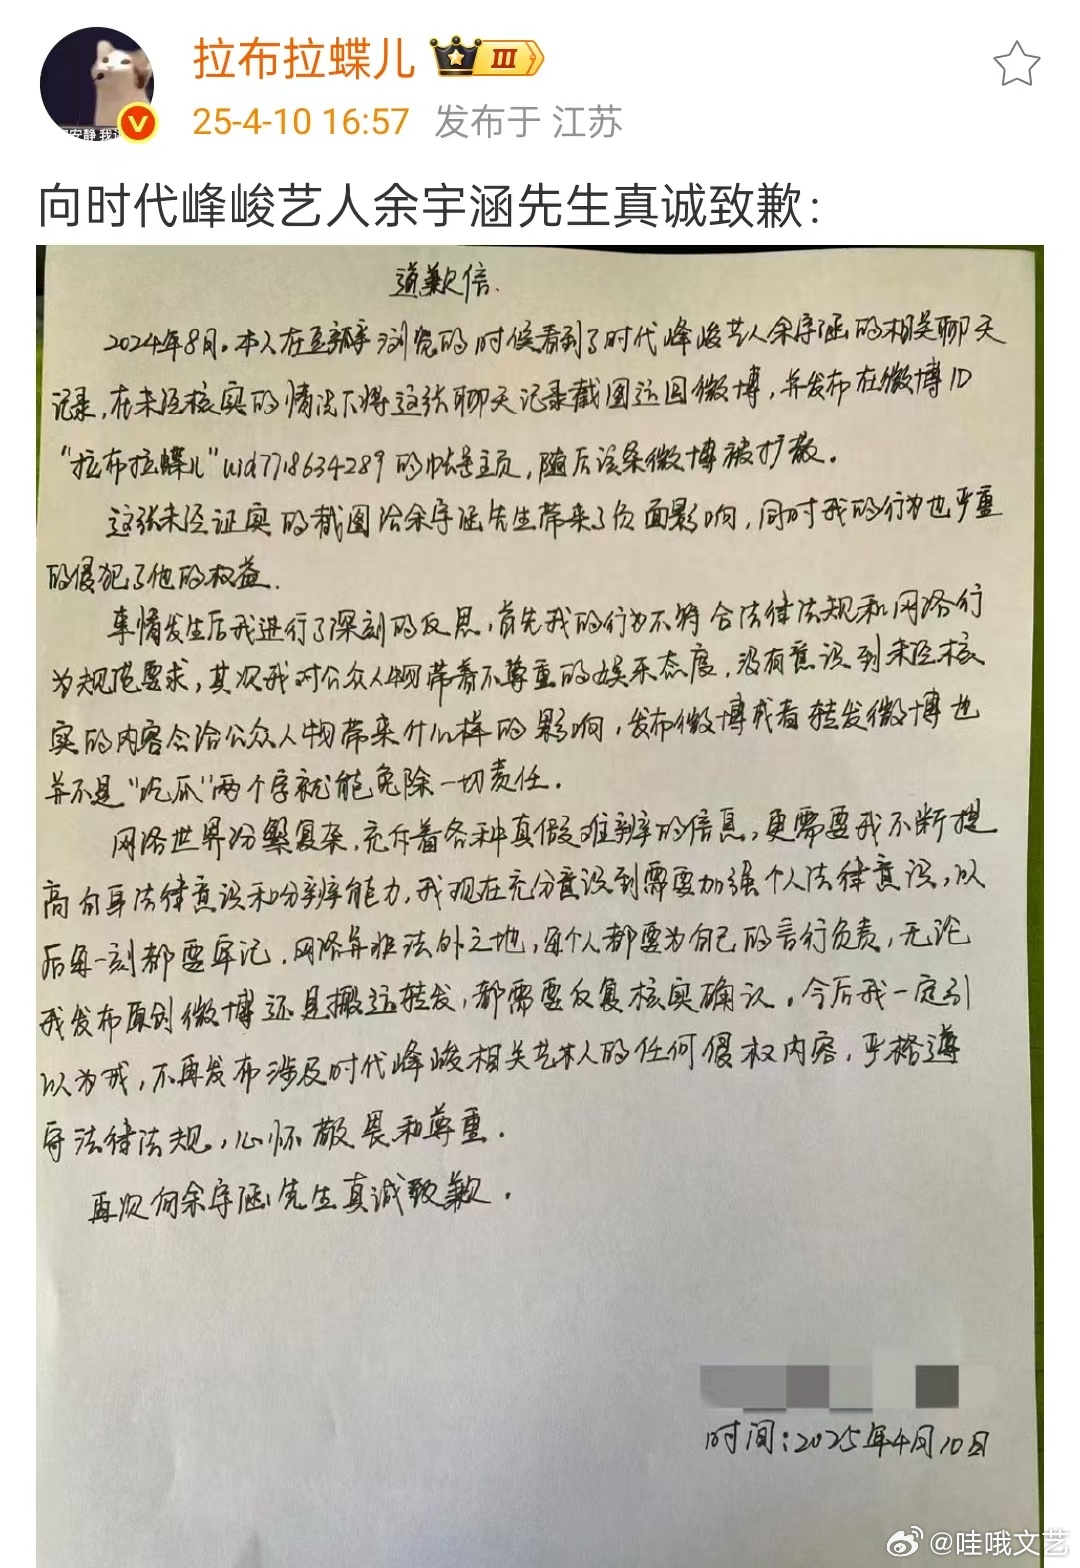 拉布拉蝶儿
III
25-4-10 16:57 发布于 江苏
向时代峰峻艺人余宇涵先生真诚致歉:
道歉信.
2024年8月.本人在豆瓣浏览的时候看到了时代峰峻艺人余宇涵的相关聊天
记录,在未经核实的情况下将这张聊天记录截图运回微博,并发布在微博ID
“拉布拉蝶儿”uid7718634289的帐号主页,随后该条微博被扩散.
这张未经证实的截图给余宇涵先生带来了负面影响,同时我的行为也严重
的侵犯了他的权益.
事情发生后我进行了深刻的反思,首先我的行为不符合法律法规和网络行
为规范要求,其次我对公众人物带着不尊重的娱乐态度,没有意识到未经核
实的内容会给公众人物带来什么样的影响,发布微博或者转发微博也
并不是“吃瓜”两个字就能免除一切责任.
网络世界纷繁复杂,充斥着各种真假难辨的信息,更需要我不断提
高自身法律意识和分辨能力,我现在充分意识到需要加强个人法律意识,以
后每一刻都要牢记,网络并非法外之地,每个人都要为自己的言行负责,无论
我发布原创微博还是搬运转发,都需要反复核实确认.今后我一定引
以为戒,不再发布涉及时代峰峻相关艺人的任何侵权内容,严格遵
守法律法规,心怀敬畏和尊重.
再次向余宇涵先生真诚致歉.
时间:2025年4月10日
@哇哦文艺